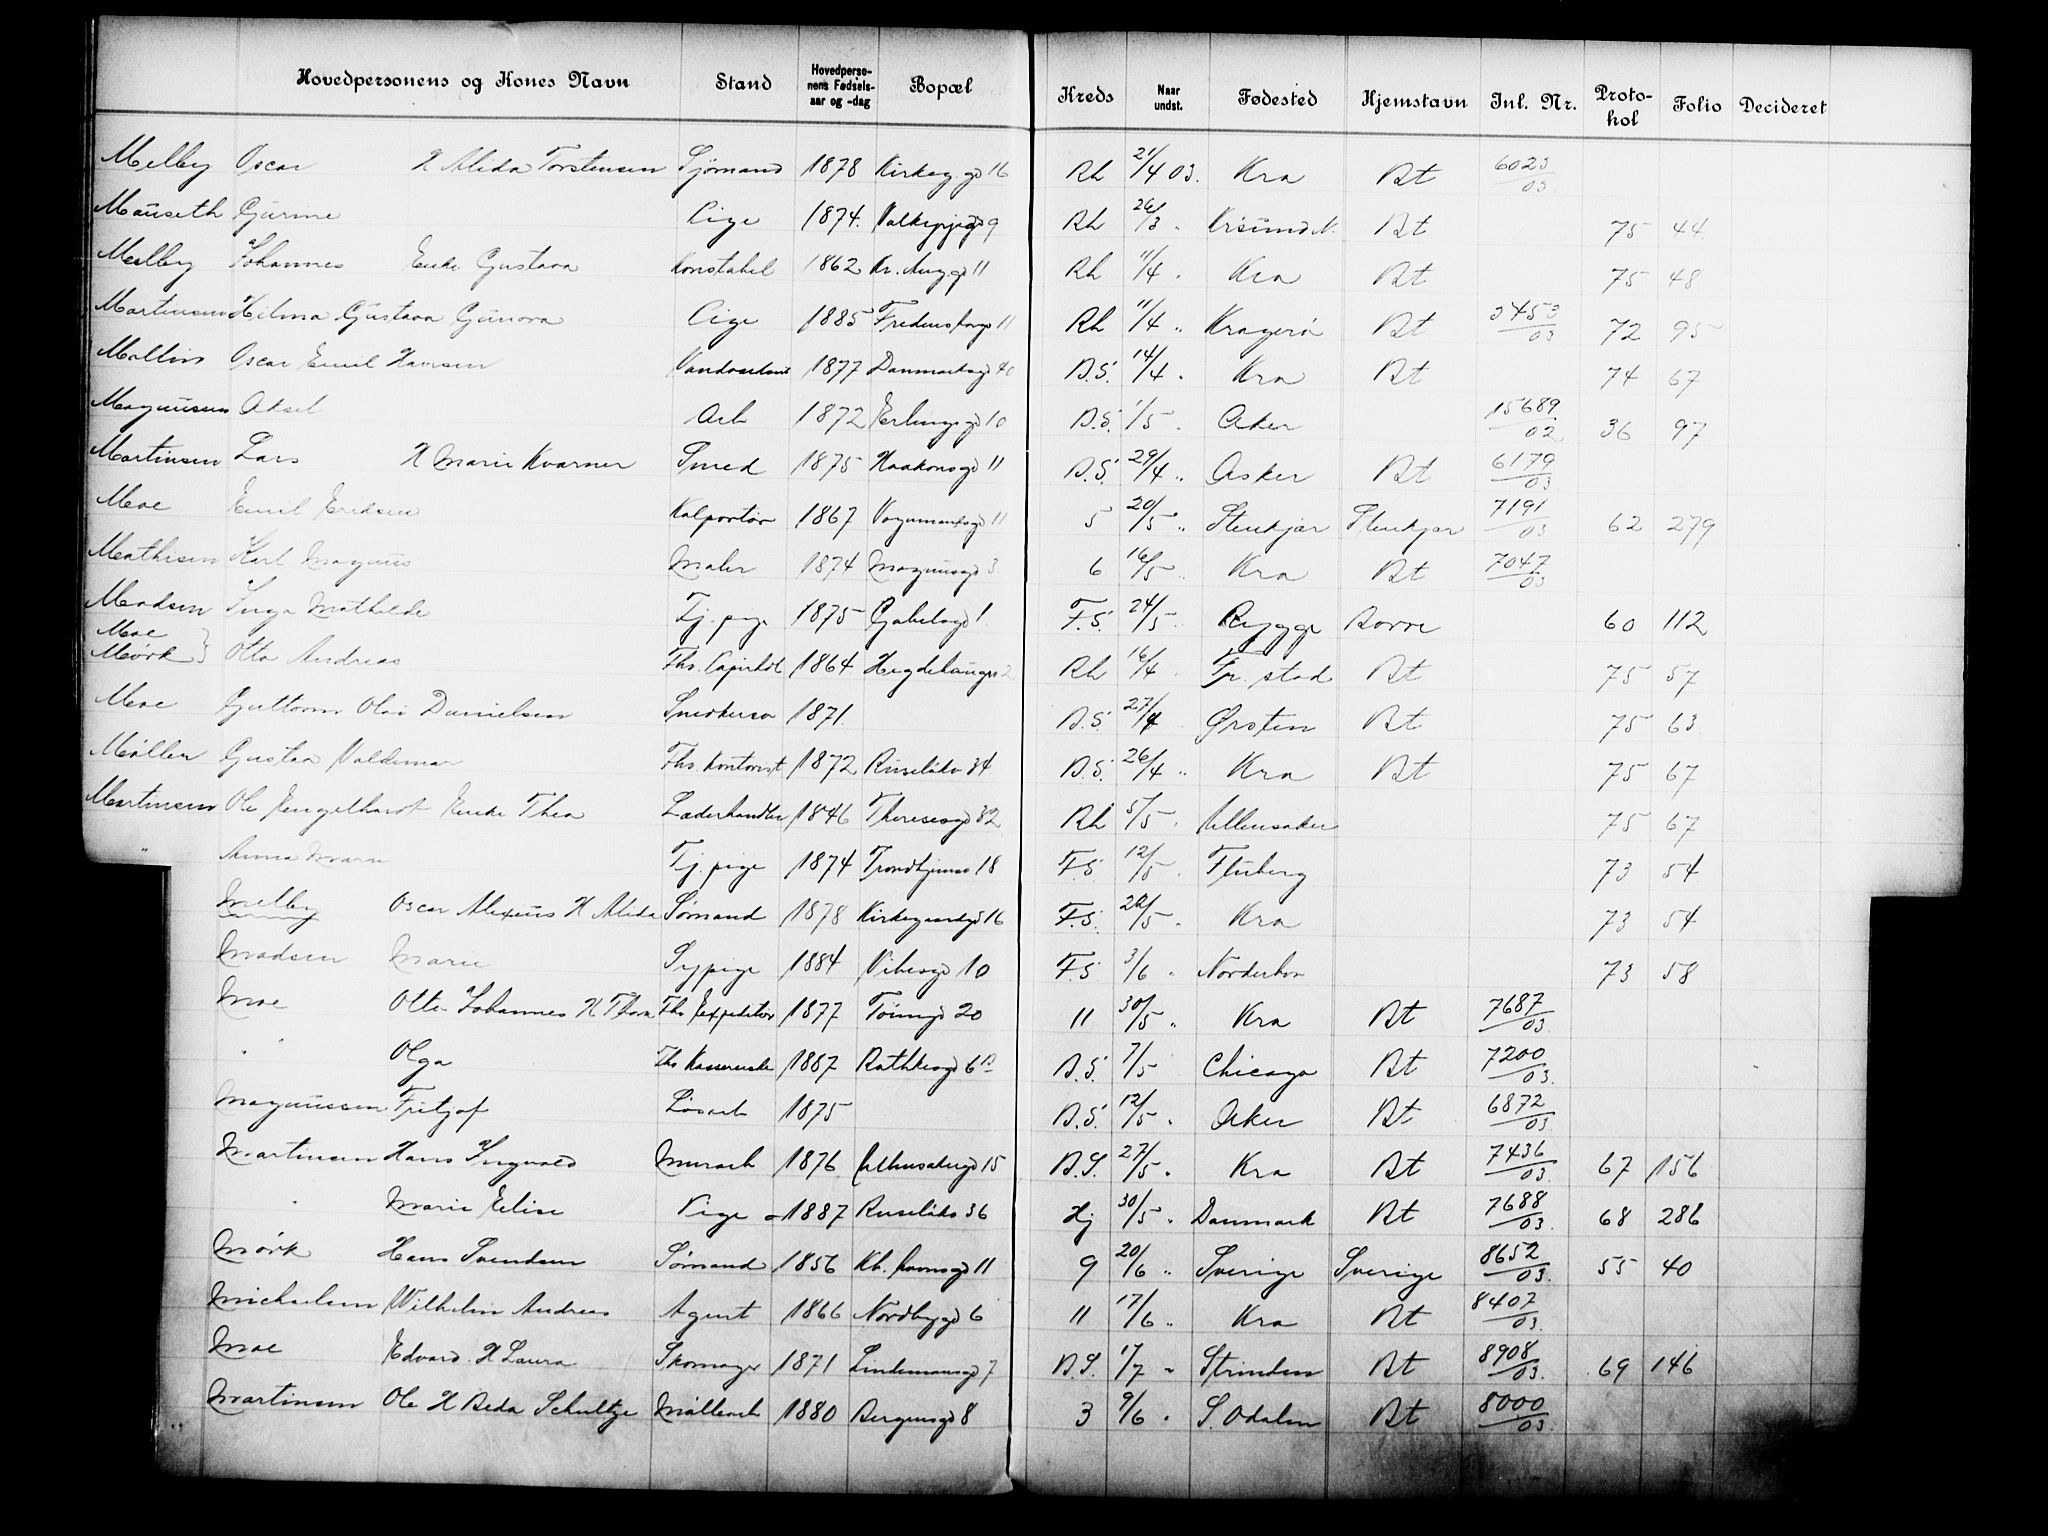 Hovedpersonens og Kones Navn Stand Hovedpersonens Fødselsaar og -dag Bopæl Kreds Naar undst. Fødested Hjemstavn Inl. Nr. Protokol Folio Decideret
Melby Oscar H Alida Torstensen Sjømand 1878 Kirkeg.gd 16 Rh 21/4 03. Kra Bt 6023/03
Mauseth Gurine Pige 1874. Valkyrjegd 9 Rh 26/3 " Krsund N. Bt 75 44
Melby Johannes Enke Gustava Konstabel 1862 Kr. Aug.gd 11 Rh 11/4 " Kra Bt 75 48
Martinsen Hilma Gustava Gunora Pige 1885 Fredensborgv 11 Rh 11/4 " Kragerø Bt 3453/03 72 95
Mellin Oscar Emil Hansen 1877 Danmarksgd 40 B.S. 14/4 " Kra Bt 74 67
Magnussen Aksel Arb 1872 Erlingsgd 10 B.S. 1/5 " Aker 15689/02 36 97
Martinsen Lars H Marie Kvarner Smed 1875 Haakonsgd 11 B.S. 29/4 " Asker Bt 6179/03
Moe Emil Eriksen Kolportør 1867 11 5 20/5 " Stenkjær Stenkjær 7191/03 62 279
Mathisen Karl Magnus Maler 1874 Magnusgd 3 6 16/5 " Kra Bt 7047/03
Madsen Inga Mathilde Tj. pige 1875 Gabelsgd 1 F.S. 24/5 " Rygge Borre 60 112
Moe
Mørk } Otto Andreas 1864 Hegdehaugsv 2 Rh 16/4 " Fr. stad Bt 75 57
Moe Guttorm Olai Danielsen Snedkersv 1871. B.S. 27/4 " Ørsten Bt 75 63
Møller Gustav Valdemar Fhv. Kontorist 1872 Ruseløkv 34 B.S. 26/4 " Kra Bt 75 67
Martinsen Ole Engelhardt Enke Thea Læderhandler 1846 Theresesgd 32 Rh 5/5 " Ullensaker 75 67
" Anna Marie Tj. pige 1874 Trondhjemsv 18 F.S. 12/5 " Fluberg 73 54
Melby Oscar Alexius H Alida Sømand 1878 Kirkegaardsgd 16 F.S. 22/5 " Kra 73 54
Madsen Marie Sypige 1884 Vibesgd 10 F.S. 3/6 " Norderhov 73 58
Moe Otto Johannes H Thora Fhv Expeditør 1877 Tøiengd 20 11 30/5 " Kra Bt 7687/03
" " Olga Fhv Kassererske 1887 Rathkesgd 6 B B.S. 7/5 Chicago Bt 7200/03
Magnussen Fritjof Løsarb 1875 B.S. 12/5 " Aker Bt 6872/03
Martinsen Hans Ingvald Murarb 1876 Ullensakergd 15 B.S. 27/5 " Kra Bt 7436/03 67 156
" Marie Elise Pige 1887 Ruseløkv 36 Hj 30/5 " Danmark Bt 7688/03 68 286
Mørk Hans Svendsen Sømand 1856 11 9 20/6 " Sverige Sverige 8652/03 55 40
Michaelsen Wilhelm Andreas Agent 1866 Nordbygd 6 11 17/6 " Kra Bt 8407/03
Moe Edvard H Laura Skomager 1871 Lindemansgd 7 B.S. 17/7 " Strinden Bt 8908/03 69 146
Martinsen Ole H Beda Schultze Møllearb 1880 Bergensgd 8 3 9/6 " S. Odalen Bt 8000/03